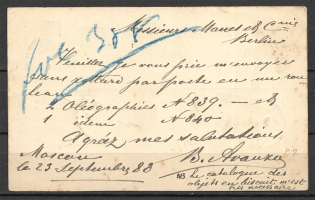 Messieurs Manes & Cnie
Berlin
Veuillez je vous prie m'envoyer
sans retard par poste en un rou
leau
1 Oléographies N 839. — &
1 idem N 840
Agréez mes salutations
Moscou B. Avanzo
le 23 Septembre 88
NB Le catalogue des
objets en biscuit m'est
nécessaire